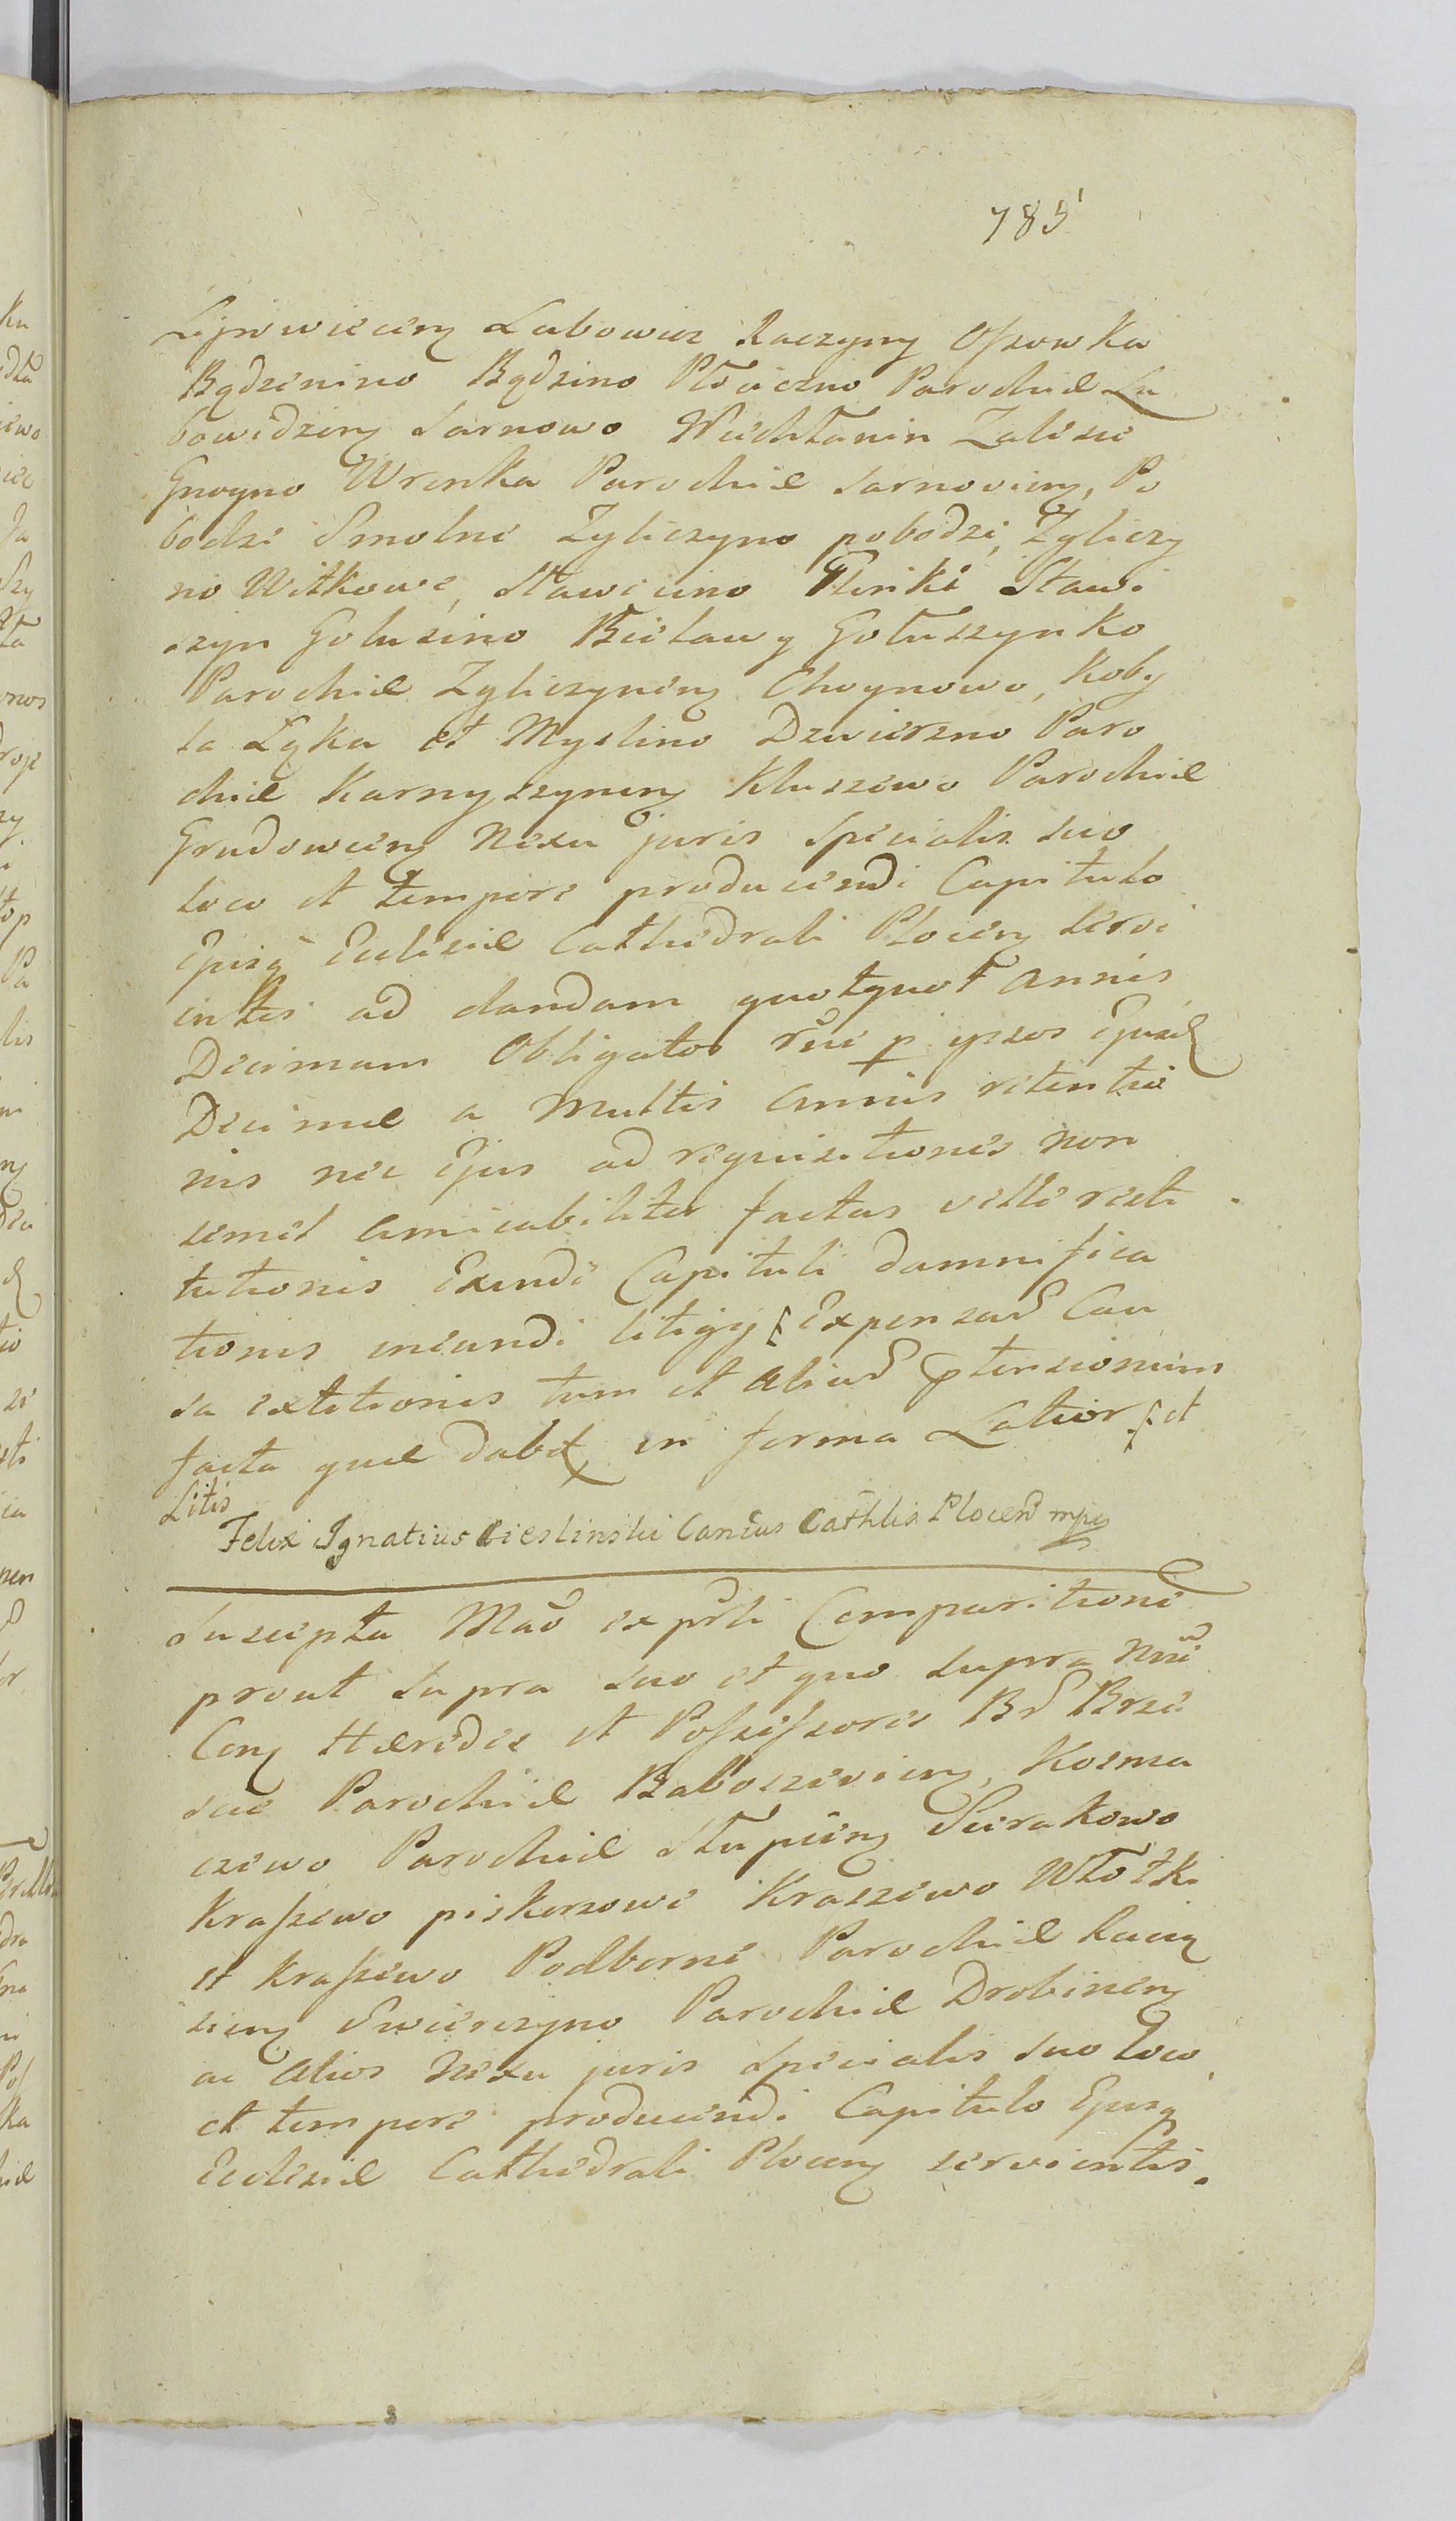 785
Lipowiecen Lubowicz Raczyny Ossowka
Bądzenino Bądzino Płociczno Parochiæ Lu
bowidzien Sarnowo Niechłanin Zalesie
Gnoyno Wronka Parochiæ Sarnovien, Po
bodzi Smolne Zyliczyno pobodzi, Zyliczy
no Witkowe, Stawicino Flinki Stawi
szyn Goluzino Bielawy Gołuszynko
Parochiæ Zyliczynen Choynowo, Koby
la Łąka et Myslino Dzwierzno Paro
chiæ Karnyszynen Kluszewo Parochiæ
Grudowien Nexu juris specialis suo
loco et tempore producendi Capitulo
Ejusq Ecclesiæ Cathedrali Plocien servi
entes ad dandam quotquot annis
Decimam Obligatos rne p ipsos Ejusd
Decimæ a Multis annis retentio
nis nec Ejus ad requisitiones non
semel amicabiliter factas velle resti
tutionis Exinde Capituli damnifica
tionis ineundi litigij Expensar Cau
sa extitionis tum et aliar ptensionum
facta quæ dabt in forma Latior et
Litis
Felix Ignatius Cieslinski Cancus Cathlis Plocen mpp
Suscepta Mao ex prli Comparitione
prout supra suo et quo supra nne
Cen Hæredes et Possessores Br Brze
scie Parochiæ Baboszevien, Kozma
czewo Parochiæ Słupien Sierakowo
Krassewo piskorzowe Kraszewo Włotki
et Krassewo Podborne Parochiæ Racią
zien Swierczyno Parochiæ Drobinen
ac alios Nexu juris specialis suo loco
et tempore producendi Capitulo Ejusq
Ecclesiæ Cathedrali Plocen servientes.